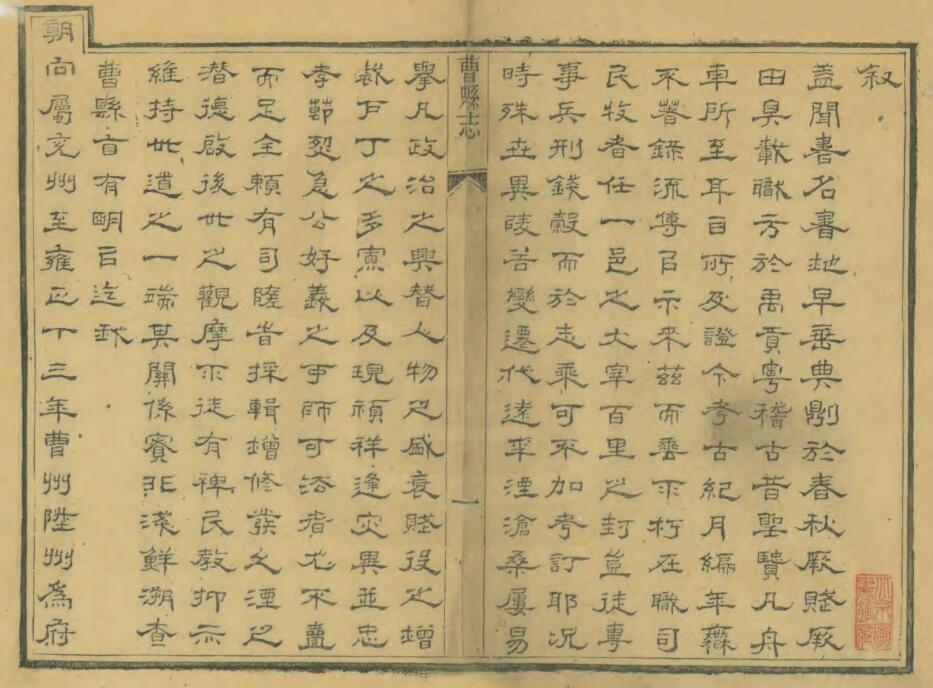 叙
蓋聞書名書地早垂典則於春秋厥賦厥
田具載職方於禹貢粵稽古昔聖賢凡舟
車所至耳目所及證今考古紀月編年靡
不著錄流傳以示來茲而垂不朽在職司
民牧者任一邑之大宰百里之封豈徒專
事兵刑錢穀而於志乘可不加考訂耶況
時殊世異陵谷變遷代遠年湮滄桑屢易
曹縣志
一
舉凡政治之興替人物之盛衰賦役之增
裁戶丁之多寡以及現禎祥逢灾異並忠
孝節烈急公好義之可師可法者尤不壹
而足全賴有司隨時採輯增修發久湮之
潛德啟後世之觀摩不徒有裨民教抑亦
維持世道之一端其關係實非淺鮮溯查
曹縣自有明以迄我
朝向屬兗州至雍正十三年曹州陞州為府